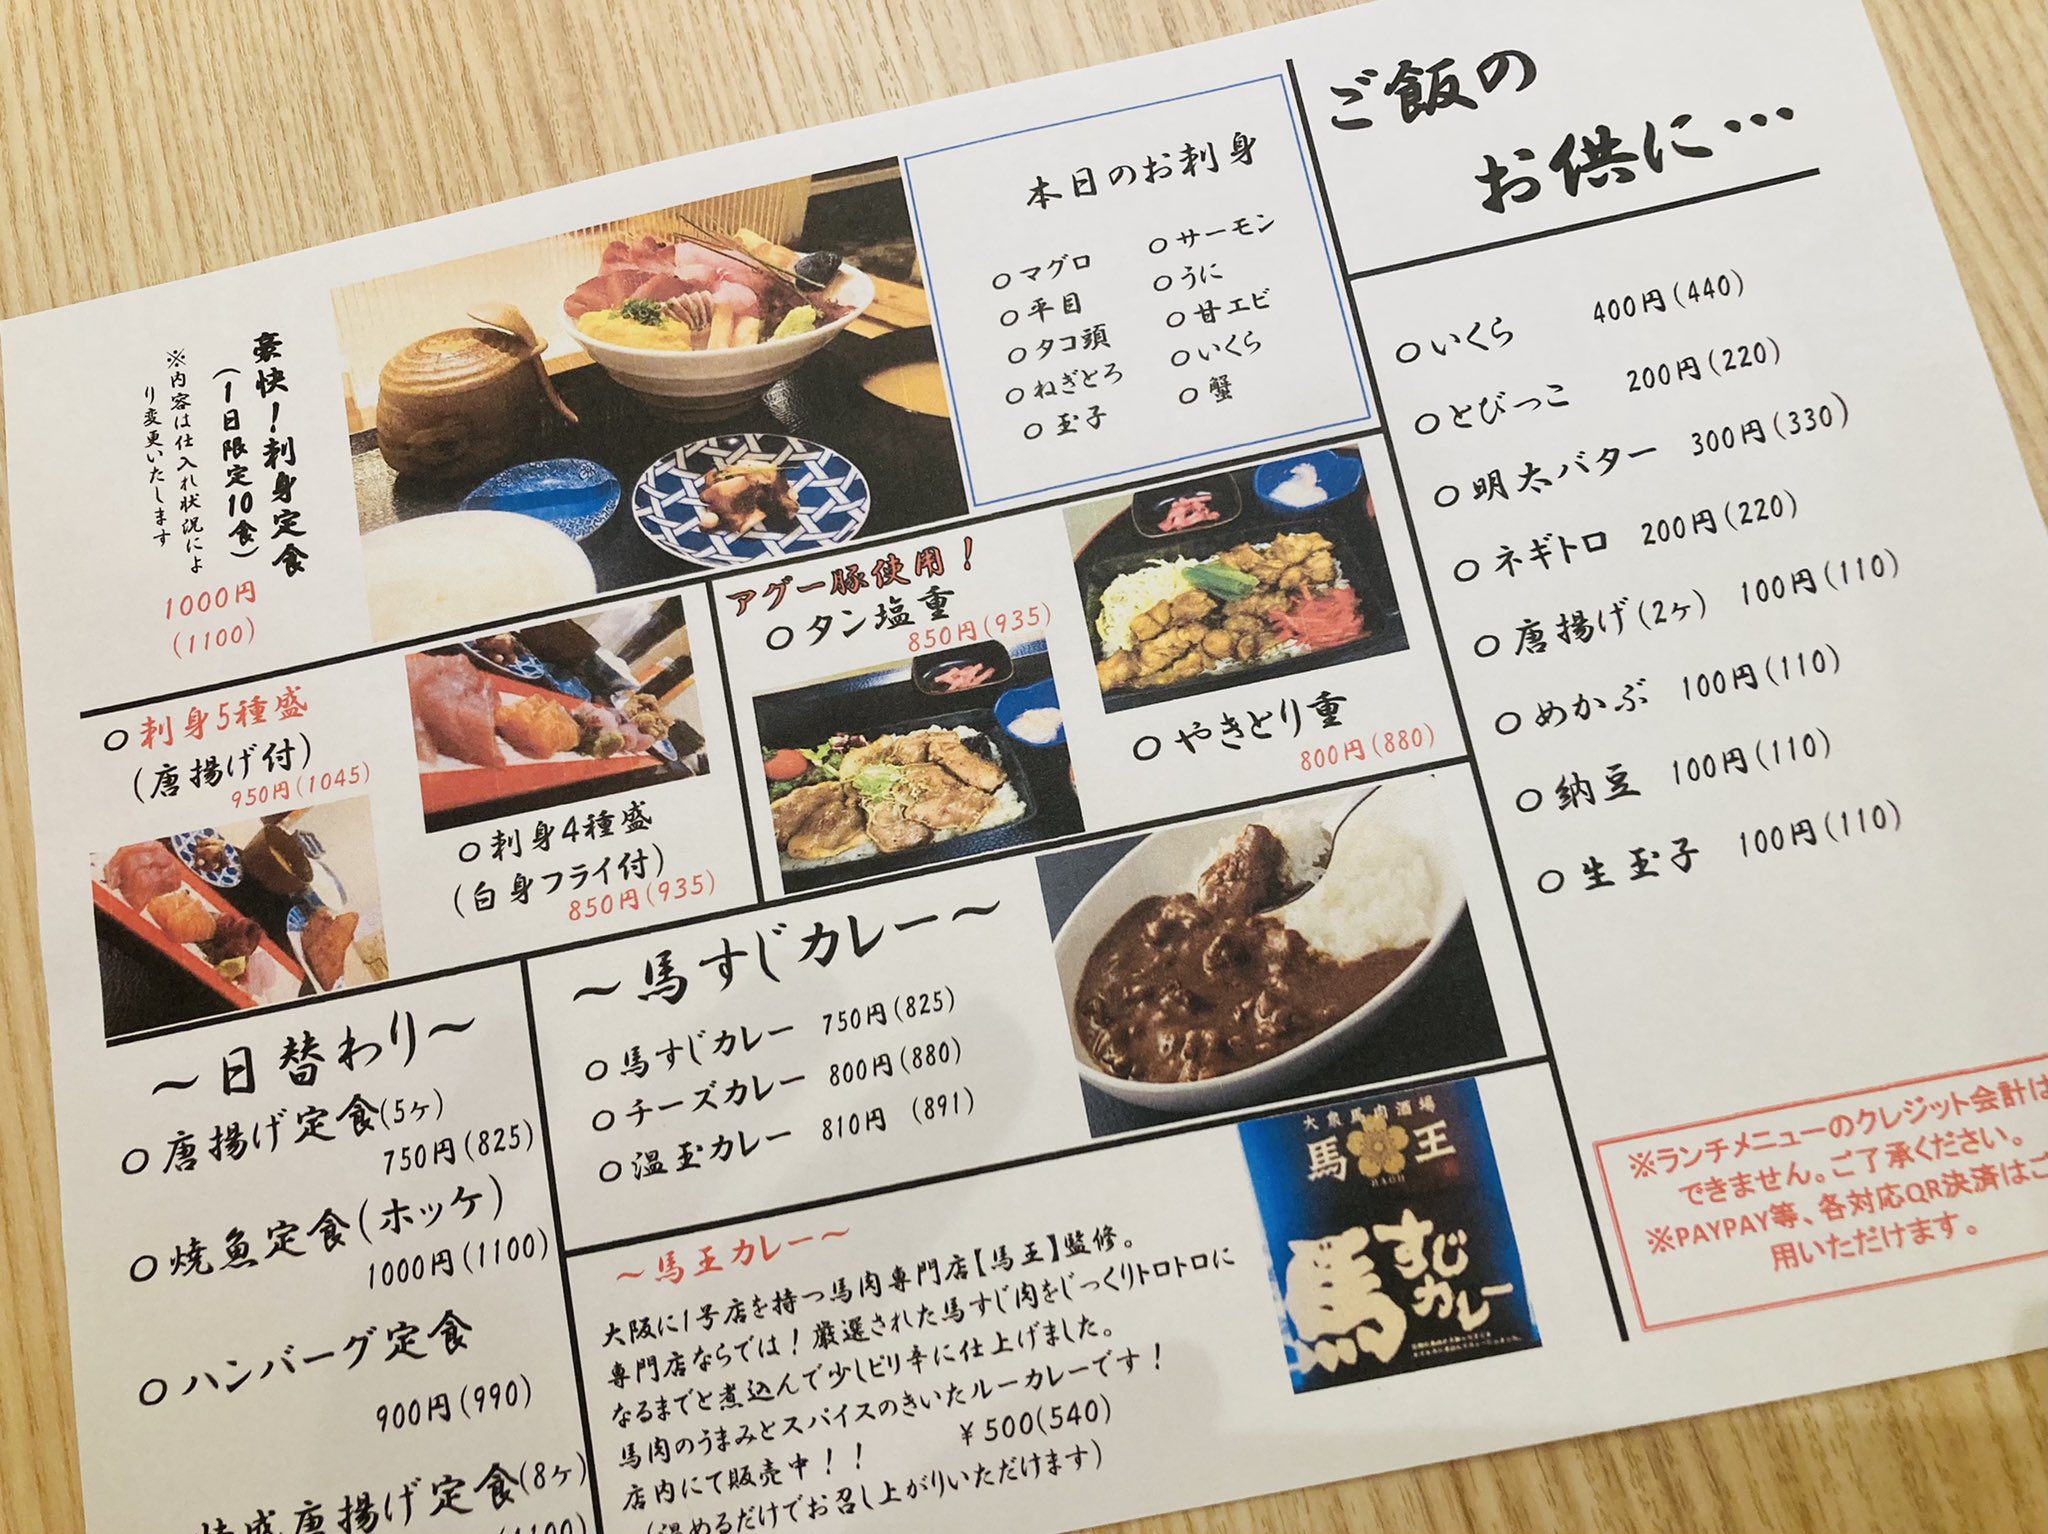 豪快！刺身定食
（1日限定10食）
※内容は仕入れ状況によ
り変更いたします
1000円
(1100)
本日のお刺身
○マグロ
○平目
○タコ頭
○ねぎとろ
○玉子
○サーモン
○うに
○甘エビ
○いくら
○蟹
○刺身5種盛
(唐揚げ付)
950円(1045)
○刺身4種盛
(白身フライ付)
850円(935)
アグー豚使用！
○タン塩重
850円(935)
○やきとり重
800円(880)
～日替わり～
○唐揚げ定食(5ヶ)
750円(825)
○焼魚定食(ホッケ)
1000円(1100)
○ハンバーグ定食
900円(990)
盛唐揚げ定食(8ヶ)
～馬すじカレー～
○馬すじカレー 750円(825)
○チーズカレー 800円(880)
○温玉カレー 810円 (891)
～馬王カレー～
大阪に1号店を持つ馬肉専門店【馬王】監修。
専門店ならでは！厳選された馬すじ肉をじっくりトロトロに
なるまでと煮込んで少しピリ辛に仕上げました。
馬肉のうまみとスパイスのきいたルーカレーです！
店内にて販売中！！ ￥500(540)
(温めるだけでお召し上がりいただけます)
大衆馬肉酒場
馬王
馬すじカレー
ご飯の
お供に…
○いくら 400円(440)
○とびっこ 200円(220)
○明太バター 300円(330)
○ネギトロ 200円(220)
○唐揚げ(2ヶ) 100円(110)
○めかぶ 100円(110)
○納豆 100円(110)
○生玉子 100円(110)
※ランチメニューのクレジット会計は
できません。ご了承ください。
※PAYPAY等、各対応QR決済はご
用いただけます。